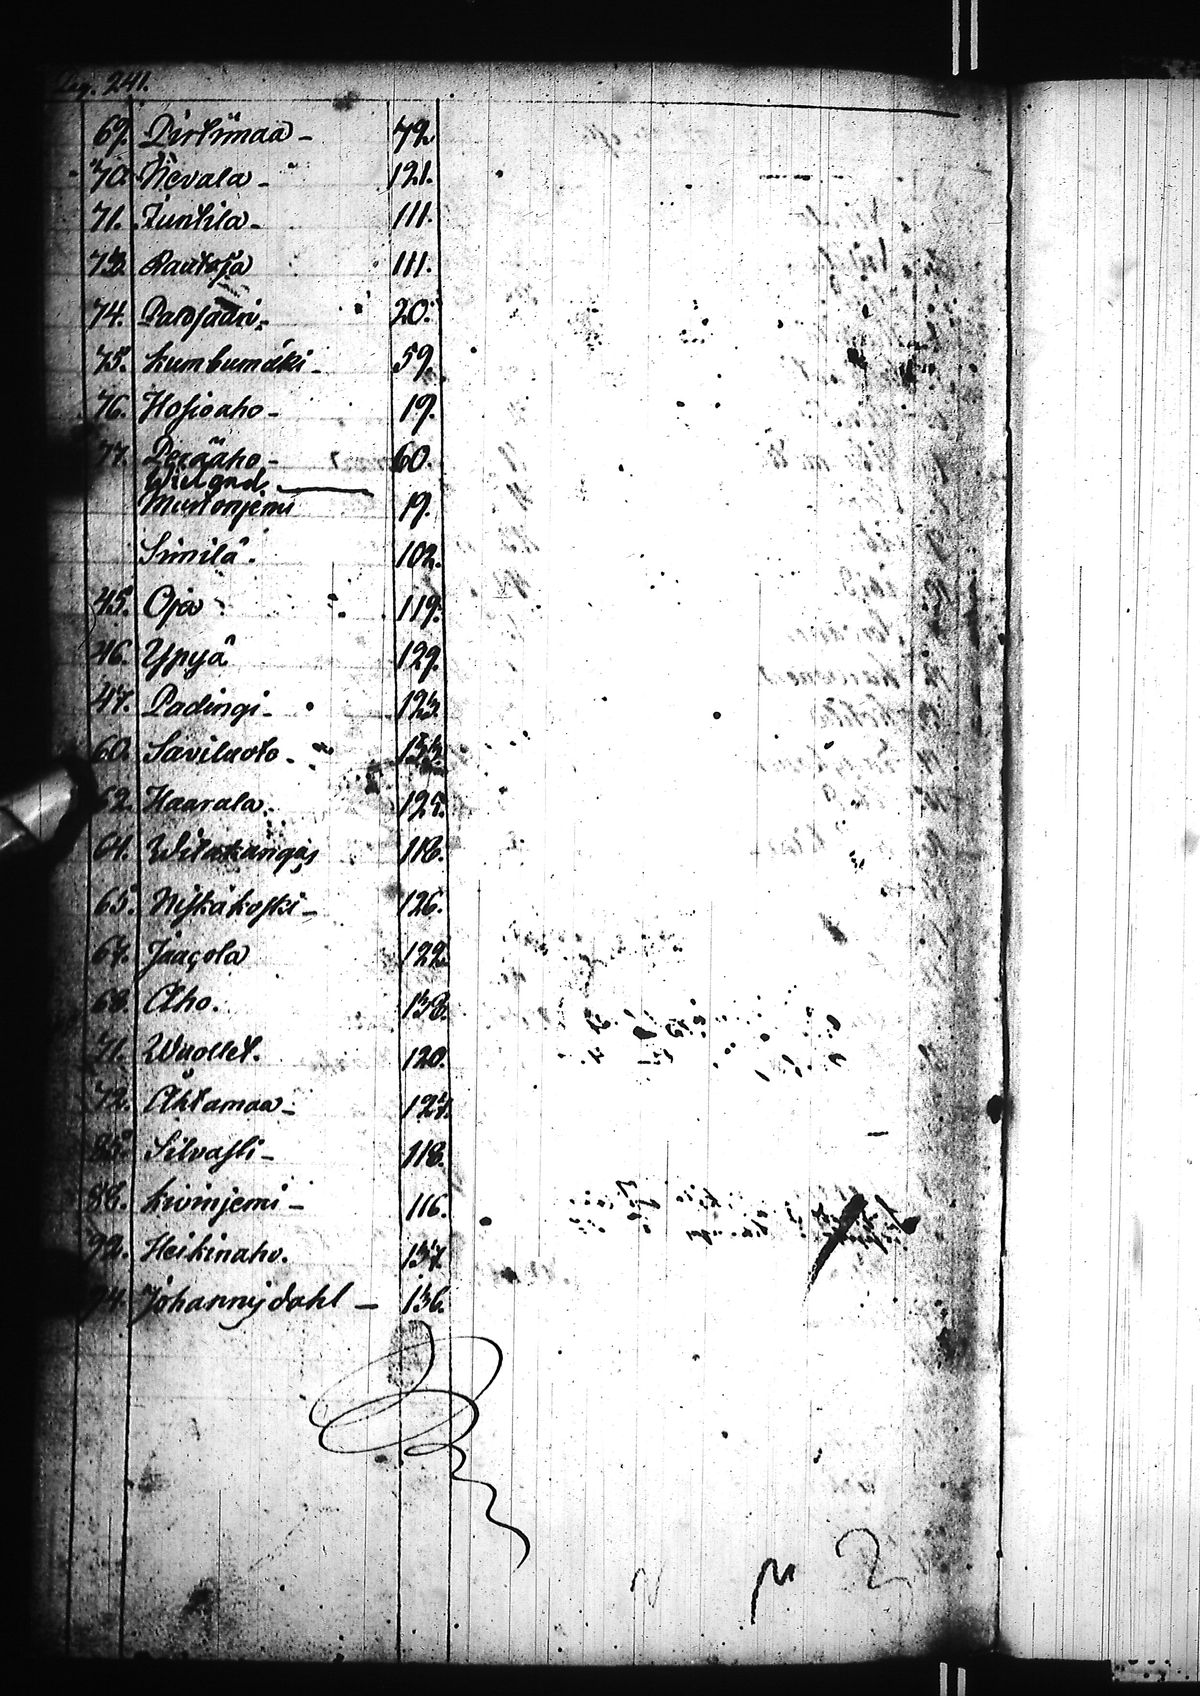 Pag. 241.
69. Pirtimaa - 72
70. Nevala - 121.
71. Junkila - 111.
73. Rautoja 111.
74. Pardjadri. 20.
75. Kumbumäki - 59.
76. Hosioaho - 19.
77. Perääho - 60.
Wielond.
Mustonjemi 19.
Similä. 102.
45. Oja 119.
46. Ypyä 129.
47. Padingi - 123
60. Saviluoto - 133
62. Haarala. 125.
64. Witakangas 118.
65. Niskakoski - 126.
67. Jaacola 122.
68. Aho. 138.
71. Wuollet. 120.
72. Ahtamaa - 127.
85. Silvasti - 118.
88. Kivinjemi - 116.
92. Heikinaho. 137.
94. Johannisdahl - 136.